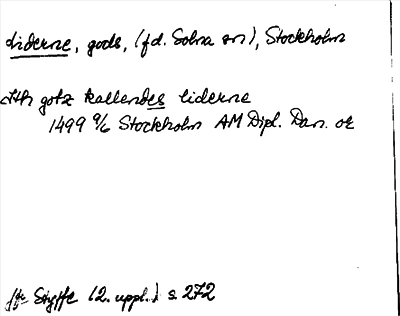 Liderne, gods, (fd. Solna sn), Stockholm
Ith gotz kallendes liderne
1499 9/6 Stockholm AM Dipl. Dan. or
Jfr Styffe (2. uppl.) s. 272